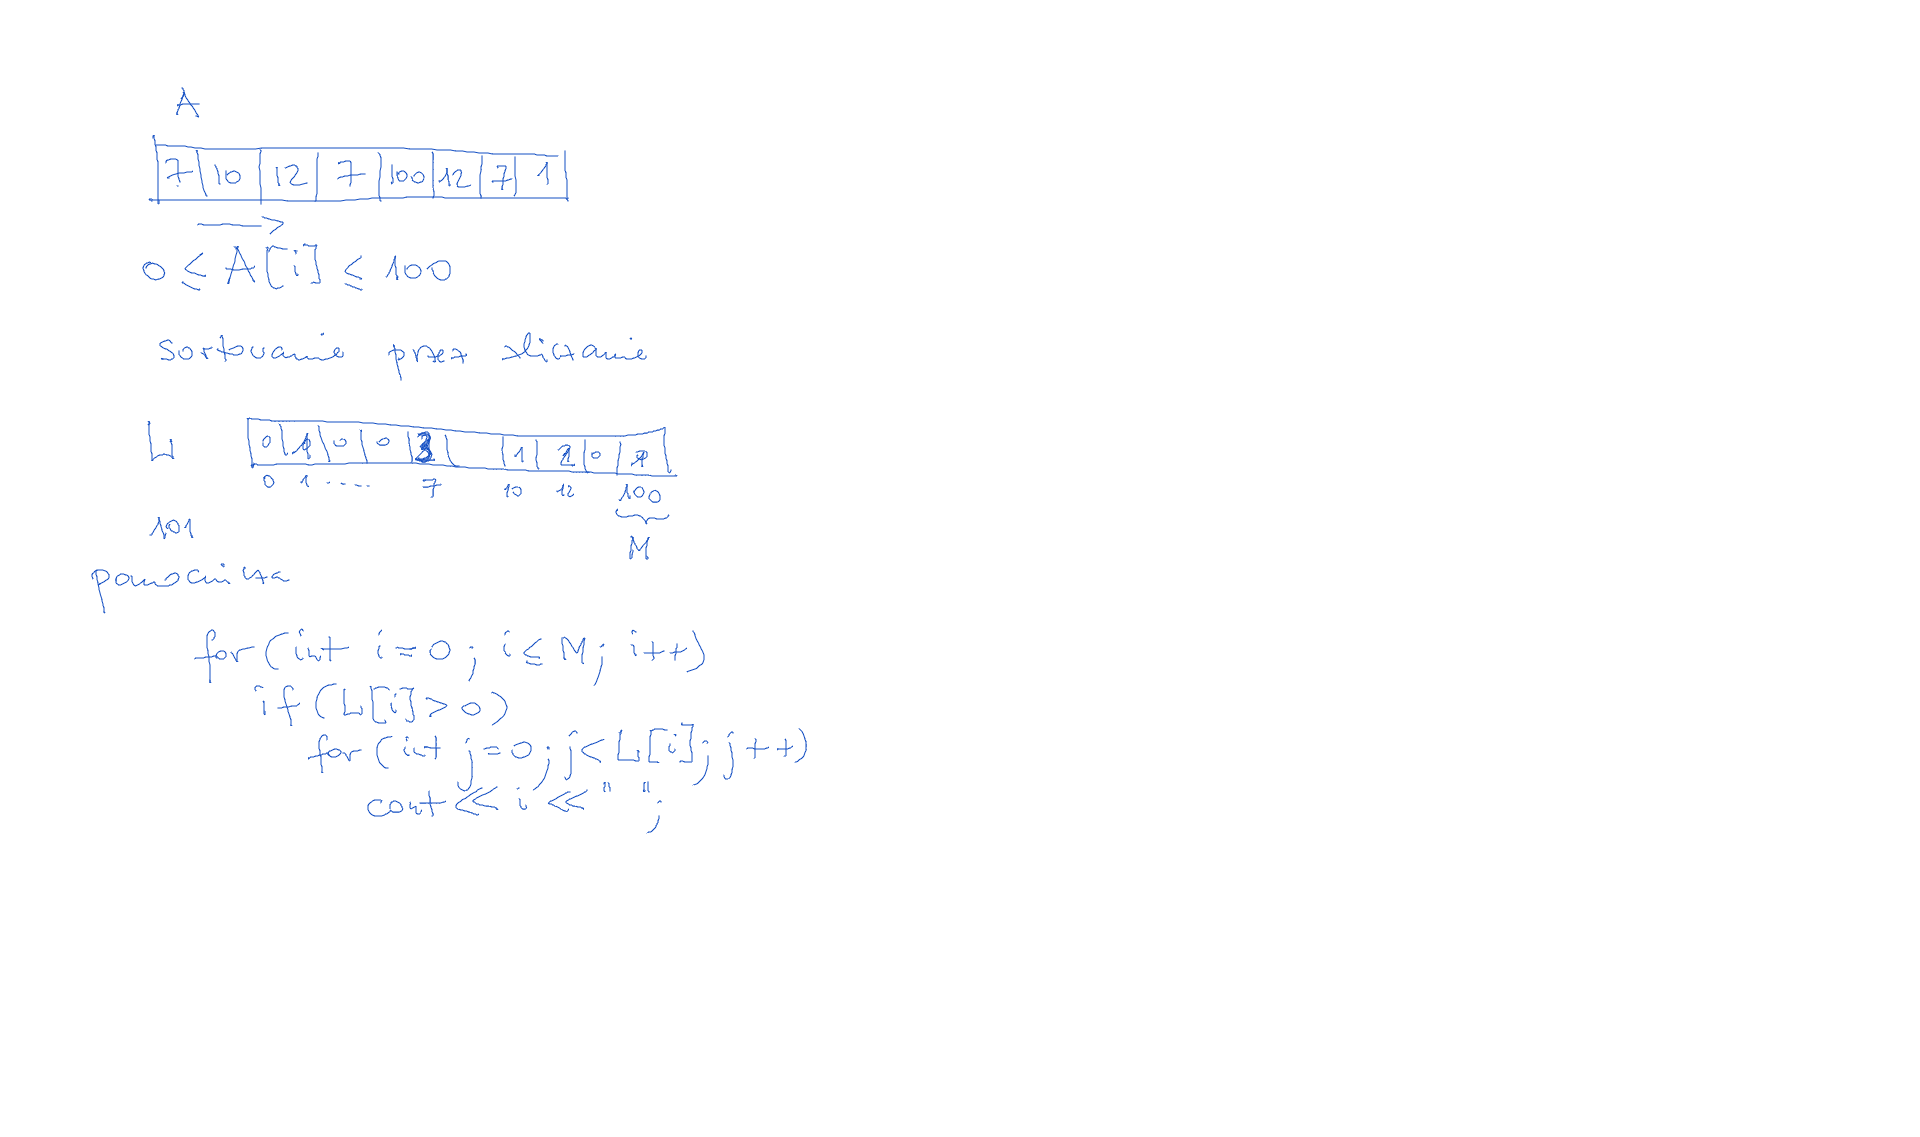 A
7 10 12 7 100 12 7 1
0 ≤ A[i] ≤ 100
Sortowanie przez zliczanie
L 0 1 0 0 3 1 2 0 1
0 1 ..... 7 10 12 100
101 M
pomocnicza
for (int i = 0; i ≤ M; i++)
if (L[i] > 0)
for (int j = 0; j < L[i]; j++)
cout << i << " ";